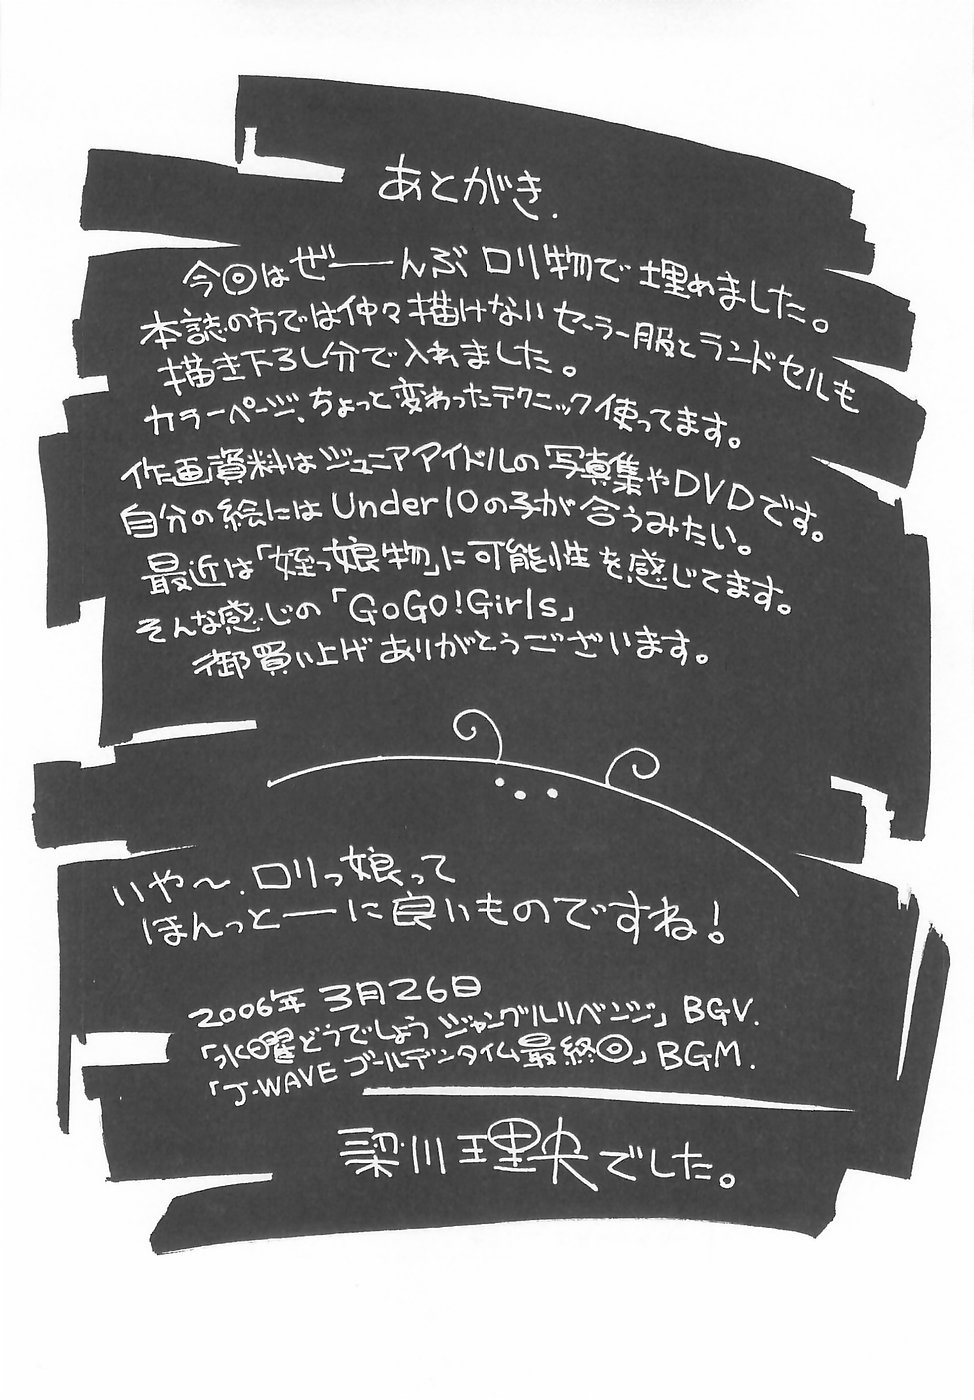 あとがき.
今回はぜーーんぶロリ物で埋めました。
本誌の方では仲々描けないセーラー服とランドセルも
描き下ろし分で入れました。
カラーページ、ちょっと変わったテクニック使ってます。
作画資料はジュニアアイドルの写真集やDVDです。
自分の絵にはUnder10の子が合うみたい。
最近は「姪っ娘物」に可能性を感じてます。
そんな感じの「GoGo!Girls」
御買い上げありがとうございます。
いや〜、ロリっ娘って
ほんっとーーに良いものですね!
2006年 3月26日
「水曜どうでしょう ジャングルリベンジ」BGV.
「J-WAVE ゴールデンタイム最終回」BGM.
梁川理央でした。